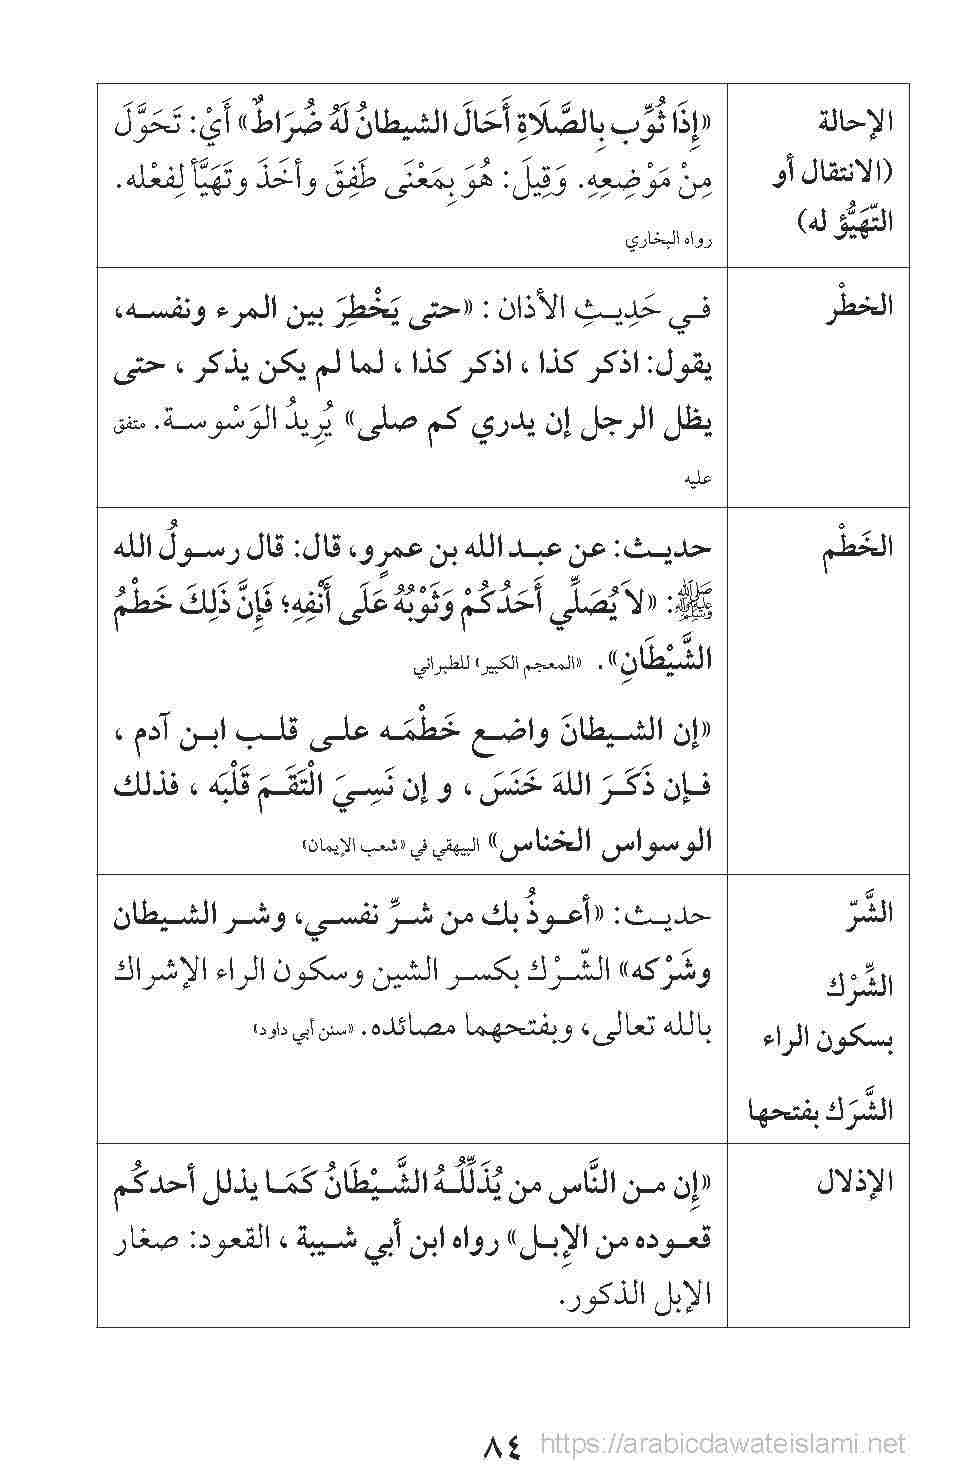 الإحالة
(الانتقال أو
التّهَيُّؤ له)
«إِذَا ثُوِّب بِالصَّلَاةِ أَحَالَ الشيطانُ لَهُ ضُرَاطٌ» أَيْ: تَحَوَّلَ
مِنْ مَوْضِعِهِ. وَقِيلَ: هُوَ بِمَعْنَى طَفِقَ وأخَذَ وتَهَيَّأ لِفعْله.
رواه البخاري
الخطْر
في حَدِيثِ الأذان : «حتى يَخْطِرَ بين المرء ونفسه،
يقول: اذكر كذا ، اذكر كذا ، لما لم يكن يذكر ، حتى
يظل الرجل إن يدري كم صلى» يُرِيدُ الوَسْوسة. متفق
عليه
الخَطْم
حديث: عن عبد الله بن عمرٍو، قال: قال رسولُ الله
ﷺ: «لاَ يُصَلِّي أَحَدُكُمْ وَثَوْبُهُ عَلَى أَنْفِهِ؛ فَإِنَّ ذَلِكَ خَطْمُ
الشَّيْطَانِ». «المعجم الكبير» للطبراني
«إن الشيطانَ واضع خَطْمَه على قلب ابن آدم ،
فإن ذَكَرَ اللهَ خَنَسَ ، و إن نَسِيَ الْتَقَمَ قَلْبَه ، فذلك
الوسواس الخناس» البيهقي في «شعب الإيمان»
الشَّرّ
الشِّرْك
بسكون الراء
الشَّرَك بفتحها
حديث: «أعوذُ بك من شرِّ نفسي، وشر الشيطان
وشَرْكه» الشّرْك بكسر الشين وسكون الراء الإشراك
بالله تعالى، وبفتحهما مصائده. «سنن أبي داود»
الإذلال
«إِن من النَّاس من يُذَلِّلُهُ الشَّيْطَانُ كَمَا يذلل أحدكُم
قعوده من الإِبل» رواه ابن أبي شيبة ، القعود: صغار
الإبل الذكور.
٨٤
https://arabicdawateislami.net